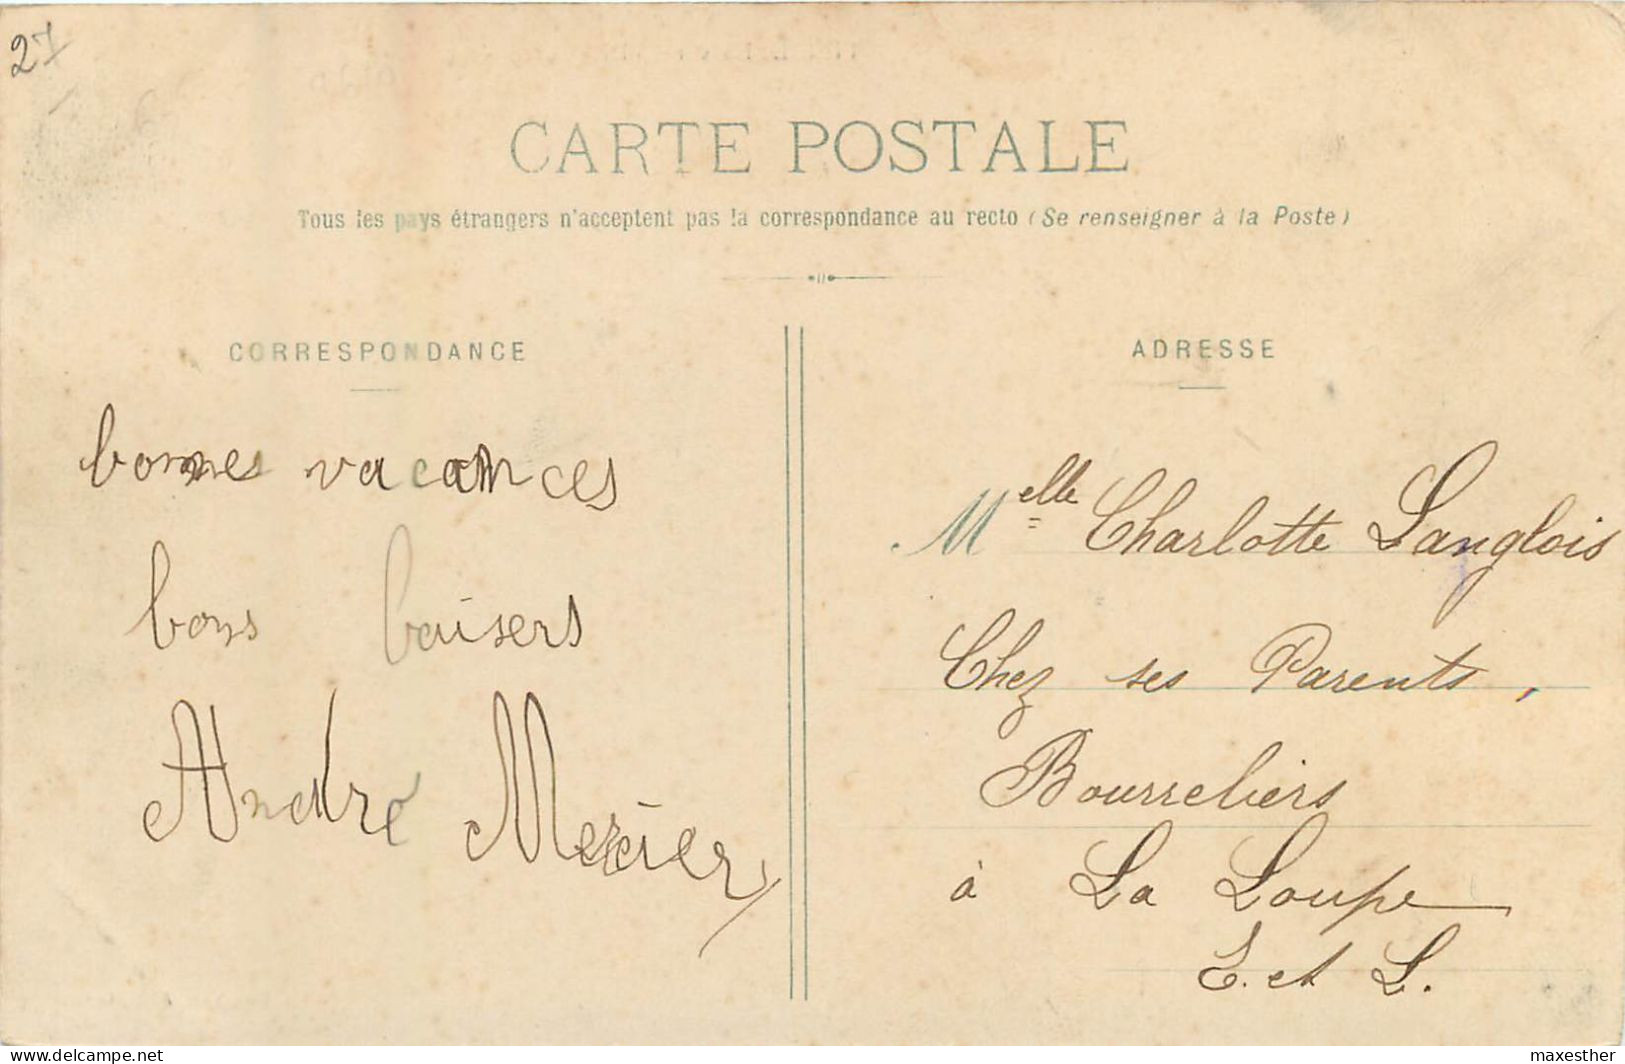 27
CARTE POSTALE
Tous les pays étrangers n'acceptent pas la correspondance au recto (Se renseigner à la Poste)
CORRESPONDANCE
bonnes vacances
bons baisers
André Mercier
ADRESSE
Melle Charlotte Langlois
Chez ses Parents,
Bourreliers
à La Loupe
E. et L.
delcampe.net
maxesther